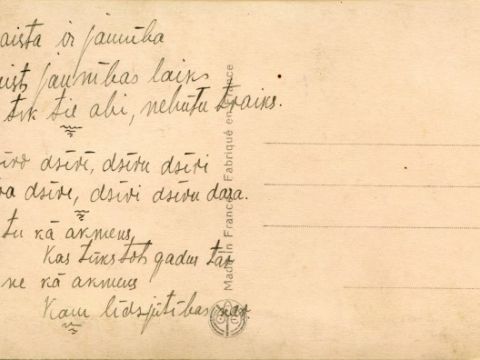 aista ir jaunība
jaunības laiks
tik tie abi, nebūtu traiks.
dzīvē, dzīru dzīvi
dzīvē, dzīvi dzīru dara.
tu kā akmens,
Kas tūkstoš gadus tāv
ne kā akmens
Kam līdzjūtības nav
Made in France Fabriqué en France